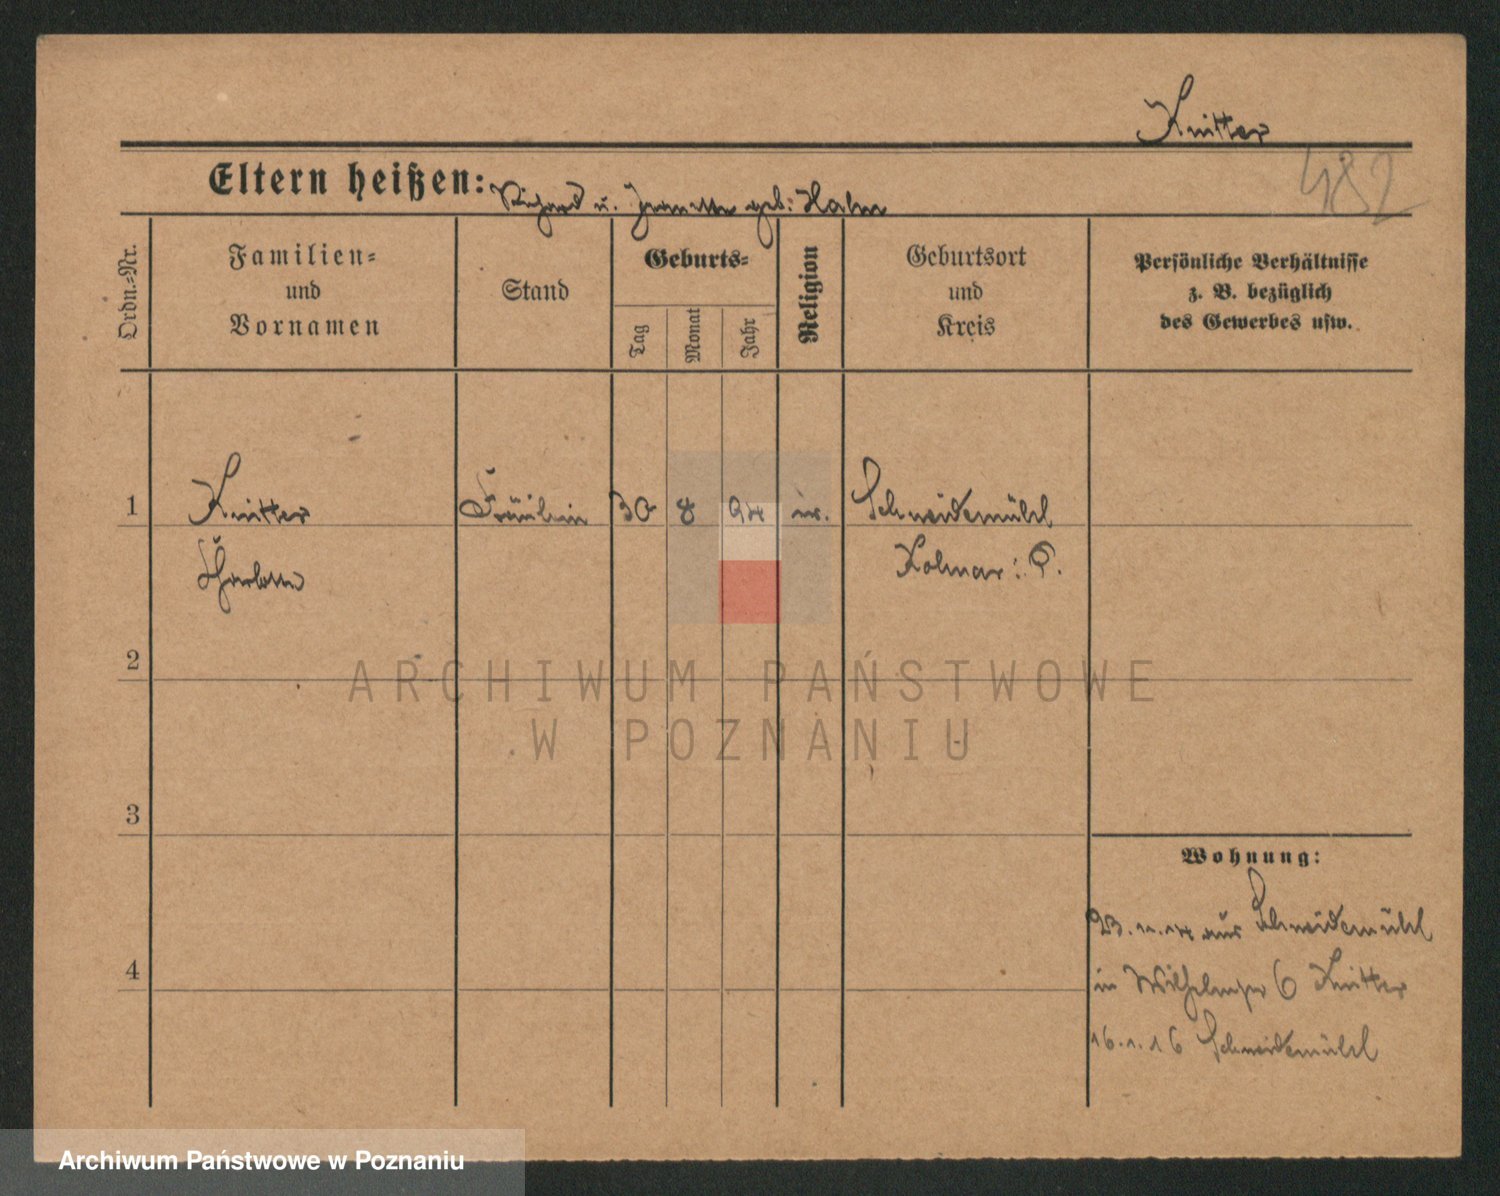 Knitter
482
Eltern heißen: Richard u. Jeanette geb: Hahn
Ordn.-Nr.
Familien- und Vornamen
Stand
Geburts-
Tag
Monat
Jahr
Religion
Geburtsort und Kreis
Persönliche Verhältnisse
z. B. bezüglich
des Gewerbes usw.
1 Knitter Fräulein 30 8 94 Schneidemühl
Charlotte Kolmar i. P.
2
ARCHIWUM PAŃSTWOWE
W POZNANIU
3
Wohnung:
23.11.14 aus Schneidemühl
4
in 6 Knitter
16.1.16 Schneidemühl
Archiwum Państwowe w Poznaniu